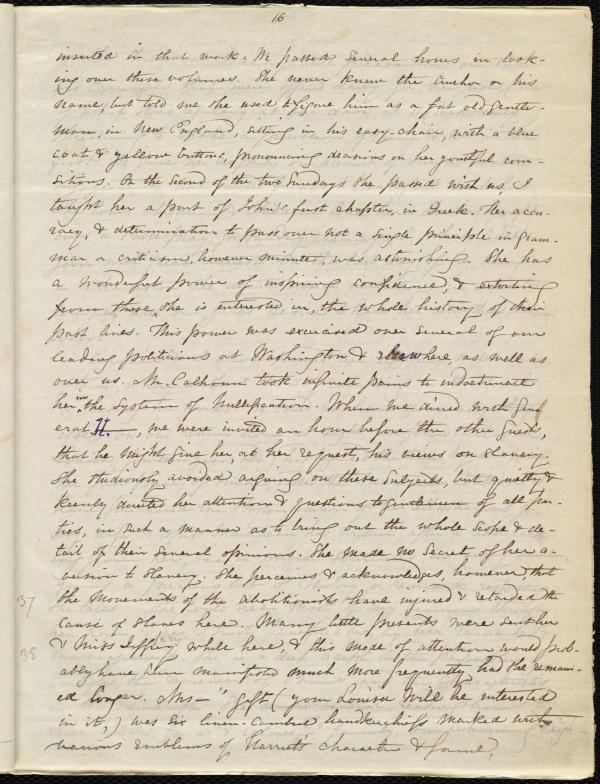 16
inserted in that work. We passed several hours in look-
ing over these volumes. She never knew the author or his
name, but told me she used to figure him as a fat old gentle-
man, in New England, sitting in his easy-chair, with a blue
coat & yellow buttons, pronouncing decisions on her youthful com-
sitions. On the second of the two Sundays she passed with us, I
taught her a part of John's first chapter, in Greek. Her accu-
racy, & determination to pass over not a single principle in gram-
mar or criticism, however minute, was astonishing. She has
a wonderful power of inspiring confidence, & extorting
from those she is interested in, the whole history of their
past lives. This power was exercised over several of our
leading politicians at Washington & elsewhere, as well as
over us. Mr. Calhoun took infinite pains to indoctrinate
her in the system of Nullification. When we dined with Gen
eral H., we were invited an hour before the other guests,
that he might give her, at her request, his views on slavery.
She studiously avoided arguing on these subjects, but quietly &
keenly directed her attention & questions to gentlemen of all par-
ties, in such a manner as to bring out the whole scope & de-
tail of their several opinions. She made no secret of her a-
version to slavery. She perceives & acknowledges, however, that
37
the movements of the abolitionists have injured & retarded the
cause of slaves here. Many little presents were sent her
38
& Miss Jeffrey while here, & this mode of attention would prob-
ably have been manifested much more frequently, had she remain-
ed longer. Mrs —'s gift (your Louisa will be interested
in it,) was six linen-cambric handkerchiefs marked with
various emblems of Harriet's character & fame,